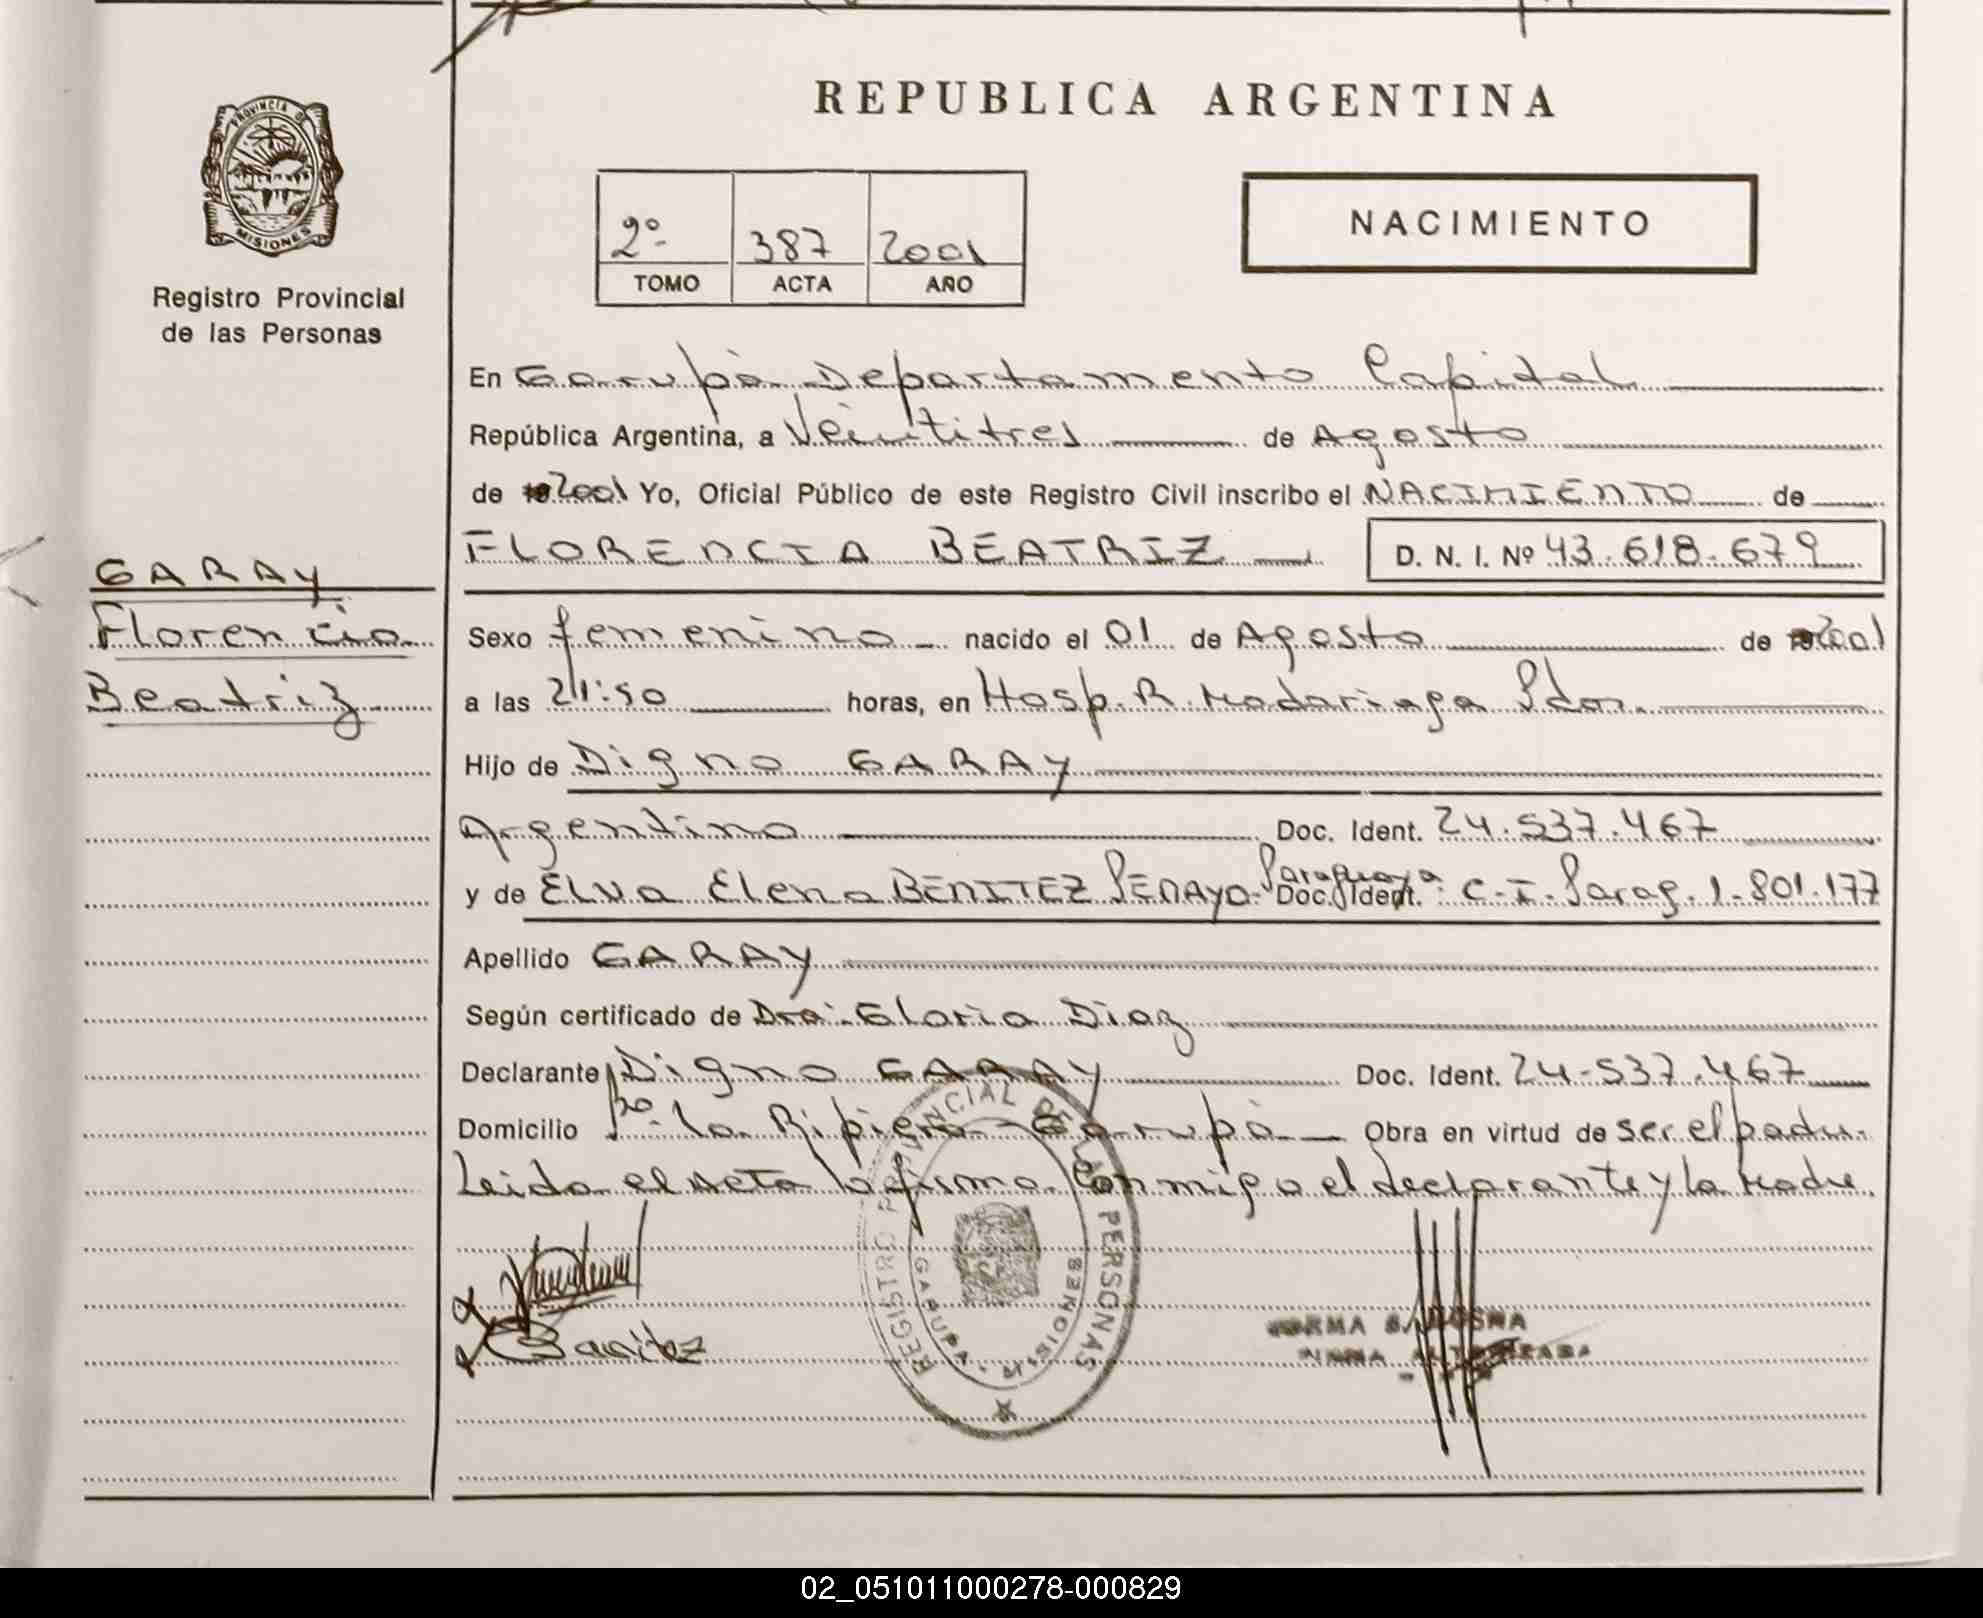 REPUBLICA ARGENTINA
PROVINCIA DE
MISIONES
Registro Provincial
de las Personas
2º 387 2001
TOMO ACTA AÑO
NACIMIENTO
En Garupá Departamento Capital
República Argentina, a Veintitres de Agosto
de 2001 Yo, Oficial Público de este Registro Civil inscribo el NACIMIENTO de
FLORENCIA BEATRIZ D. N. I. Nº 43.618.679
GARAY
Florencia
Beatriz
Sexo femenino nacido el 01 de Agosto de 2001
a las 21:50 horas, en Hosp. R. Madariaga Pdas.
Hijo de Digno GARAY
Argentino Doc. Ident. 24.537.467
y de Elva Elena BENITEZ PENAYO- Paraguaya Doc. Ident. C.I. Parag. 1.801.177
Apellido GARAY
Según certificado de Dra. Gloria Diaz
Declarante Digno GARAY Doc. Ident. 24-537.467
Domicilio Bº La Ripiera - Garupá Obra en virtud de ser el padre.
Leida el Acta la firma Conmigo el declarante y la Madre.
Benitez
REGISTRO PROVINCIAL DE LAS PERSONAS
GARUPA - MISIONES
02_051011000278-000829